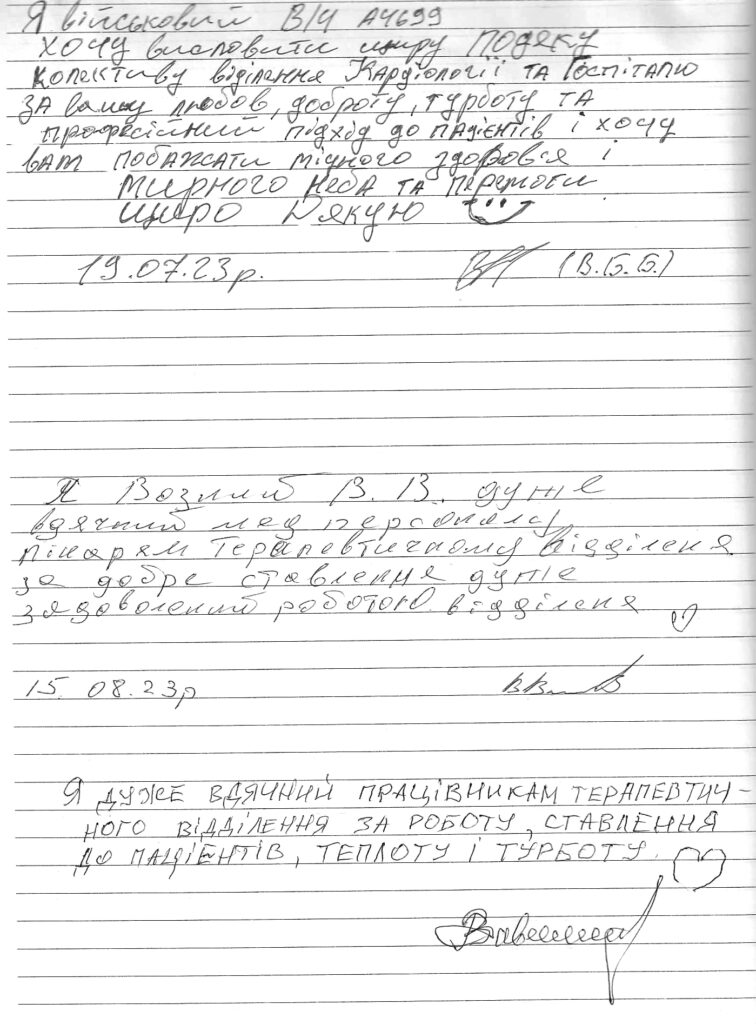 Я військовий В/Ч А4699
хочу висловити щиру подяку
колективу віділення Кардіології та Госпіталю
за вашу любов, доброту, турботу та
професійний підхід до пацієнтів і хочу
вам побажати міцного здоровся і
мирного неба та перемоги
щиро дякую
19.07.23р. (В.Б.Б.)
Я В.В. дуже
вдячний мед персоналу,
лікарям Терапевтичному відділеня
за добре ставлення дуже
задоволений роботою відділеня
15.08.23р
Я ДУЖЕ ВДЯЧНИЙ ПРАЦІВНИКАМ ТЕРАПЕВТИЧ-
НОГО ВІДДІЛЕННЯ ЗА РОБОТУ, СТАВЛЕННЯ
ДО ПАЦІЄНТІВ, ТЕПЛОТУ І ТУРБОТУ.